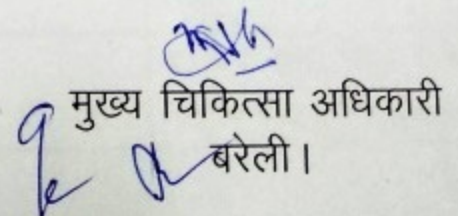 मुख्य चिकित्सा अधिकारी
बरेली।